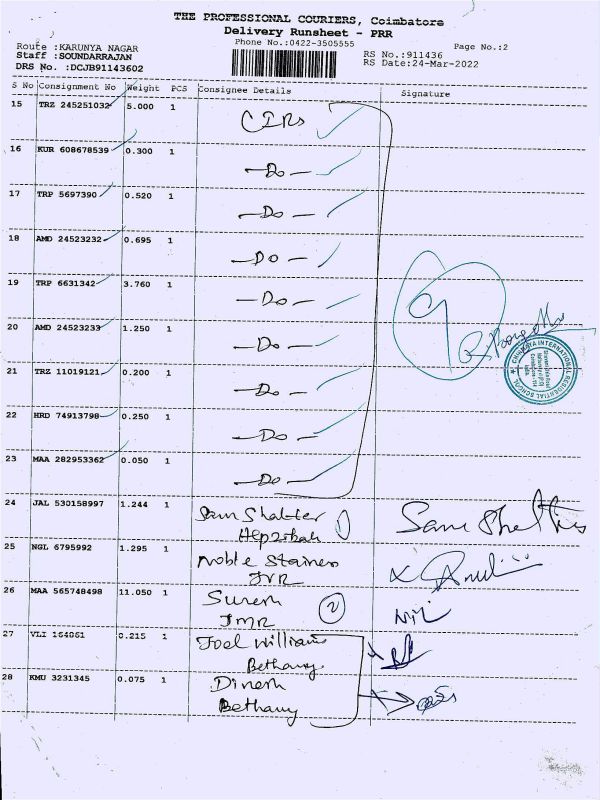 THE PROFESSIONAL COURIERS, Coimbatore
Delivery Runsheet - PRR
Phone No.:0422-3505555
Page No.:2
Route :KARUNYA NAGAR
Staff :SOUNDARRAJAN
DRS No. :DCJB91143602
RS No.:911436
RS Date:24-Mar-2022
S No Consignment No Weight PCS Consignee Details Signature
15 TRZ 245251032 5.000 1 CIRS
16 KUR 608678539 0.300 1 -Do-
17 TRP 5697390 0.520 1 -Do-
18 AMD 24523232 0.695 1 -Do-
19 TRP 6631342 3.760 1 -Do-
20 AMD 24523233 1.250 1 -Do-
21 TRZ 11019121 0.200 1 -Do-
22 HRD 74913798 0.250 1 -Do-
23 MAA 282953362 0.050 1 -Do-
CHINMAYA INTERNATIONAL RESIDENTIAL SCHOOL
24 JAL 530158997 1.244 1 Sam
25 NGL 6795992 1.295 1 Noble
26 MAA 565748498 11.050 1 Suresh
JMR
2
27 VLI 164061 0.215 1 Joel Williams
Bethany
28 KMU 3231345 0.075 1 Dinesh
Bethany